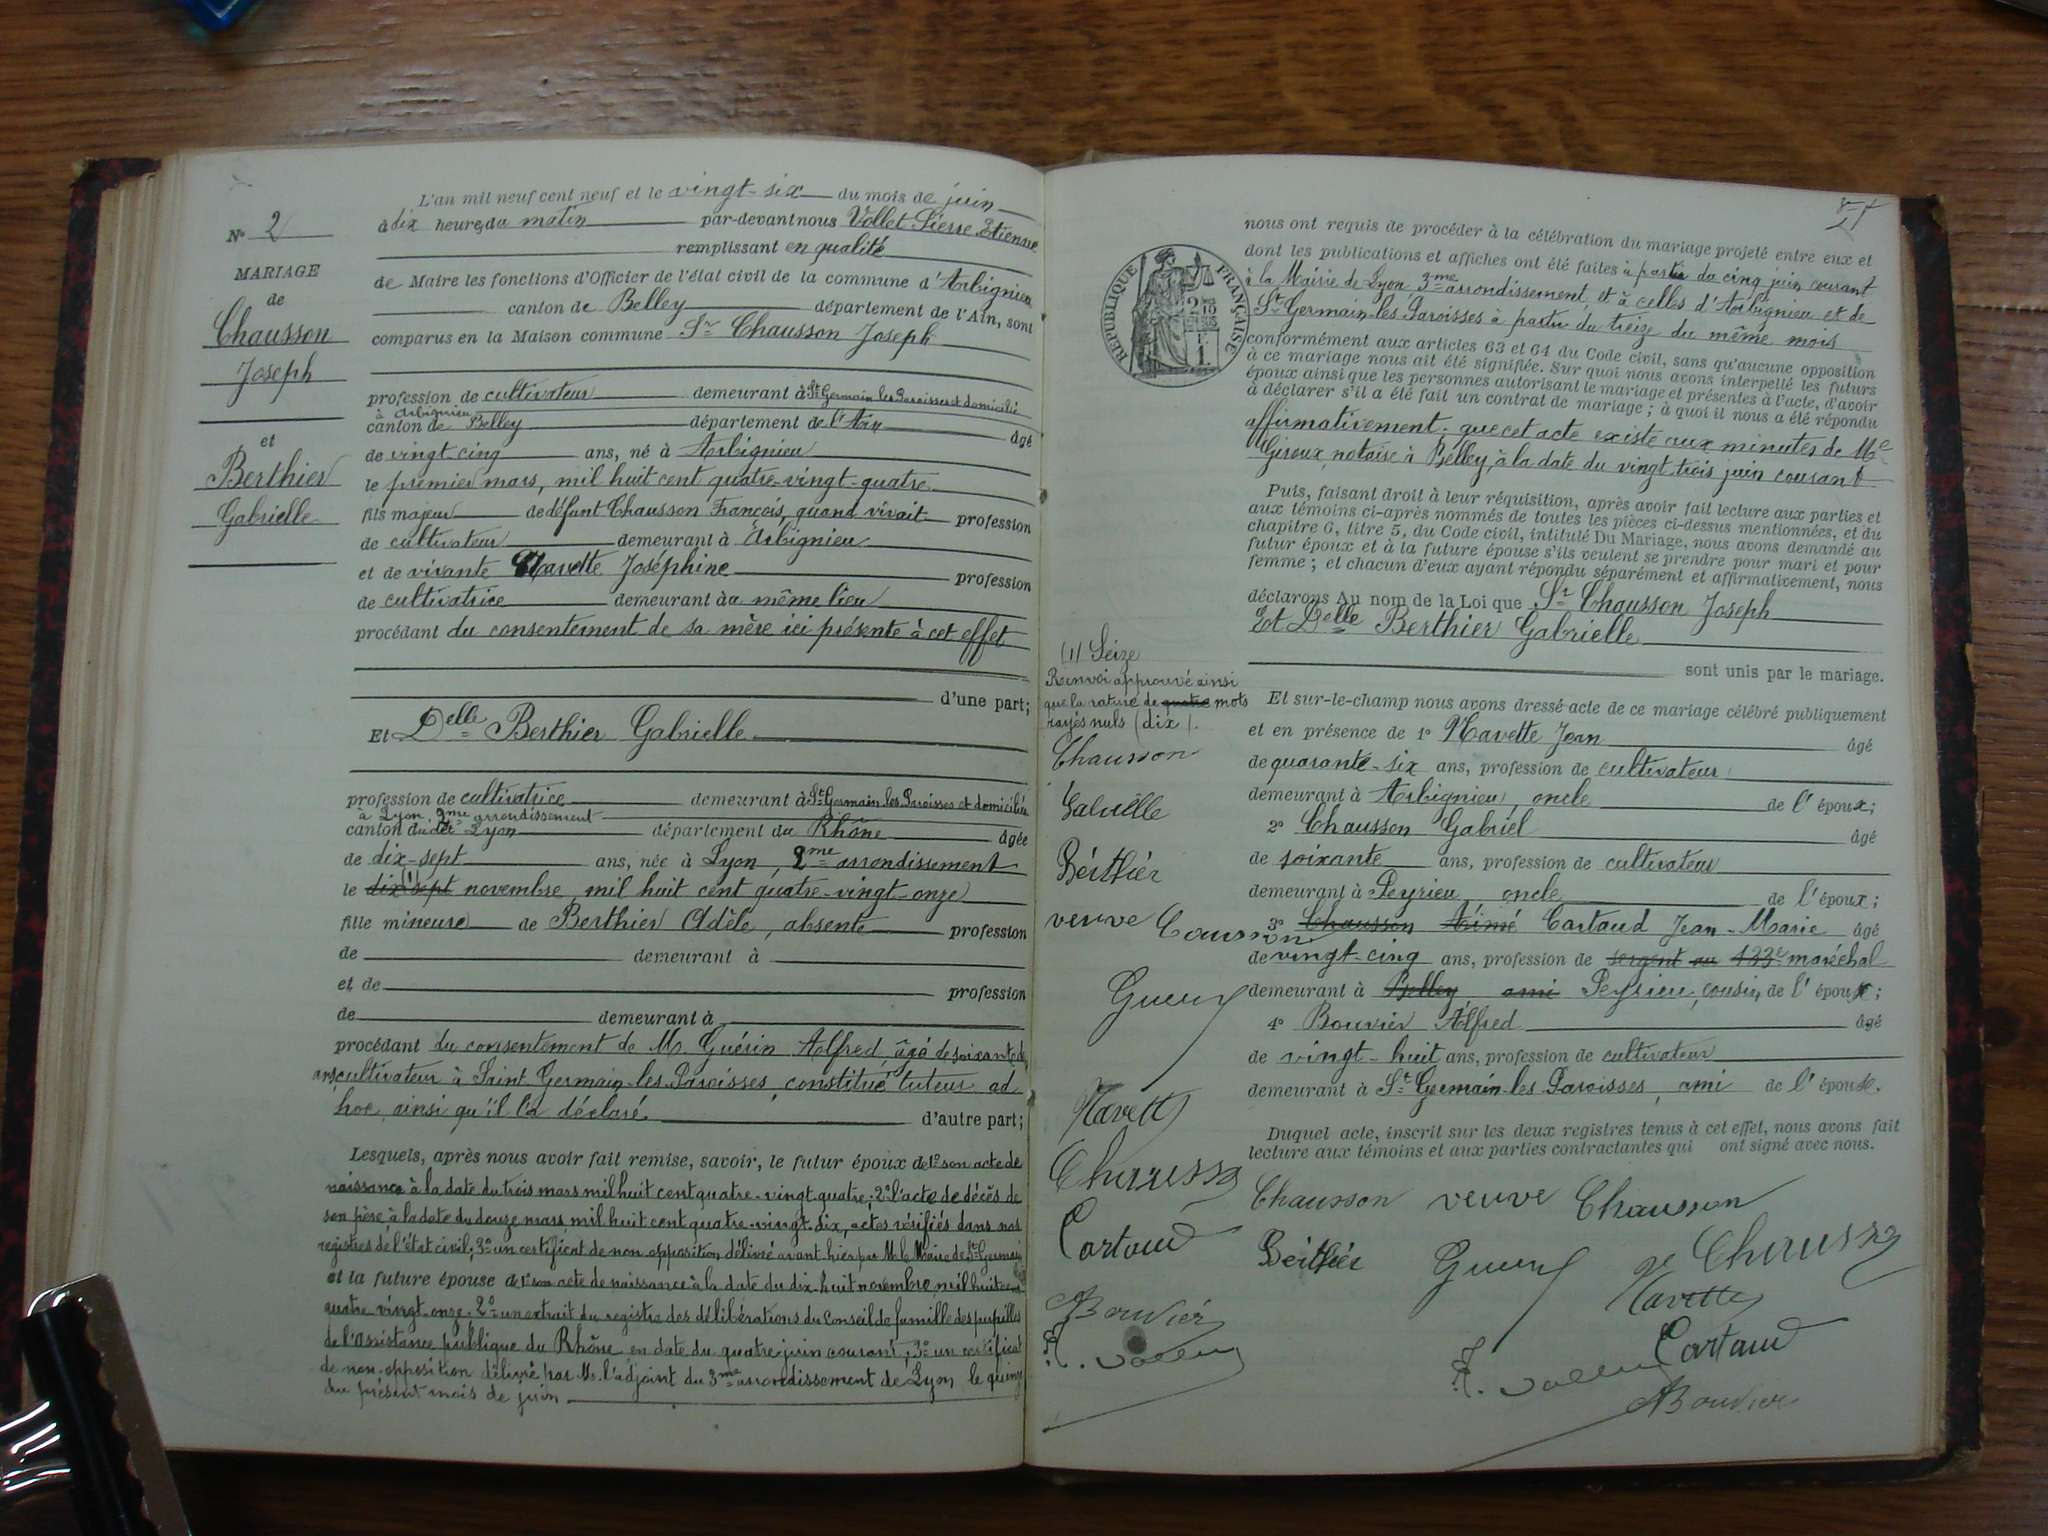 L'an mil neuf cent neuf et le vingt-six du mois de juin
à dix heures du matin par-devant nous Vollet Pierre Etienne
remplissant en qualité
de Maire les fonctions d'Officier de l'état civil de la commune d'Arbignieu
canton de Belley département de l'Ain, sont
comparus en la Maison commune Sr Chausson Joseph
N° 2
MARIAGE
de
Chausson
Joseph
et
Berthier
Gabrielle
profession de cultivateur demeurant à St Germain les Paroisses et domicilié
à Arbignieu
canton de Belley département de l'Ain âgé
de vingt-cinq ans, né à Arbignieu
le premier mars, mil huit cent quatre-vingt-quatre
fils majeur de défunt Chausson François, quand vivait profession
de cultivateur demeurant à Arbignieu
et de vivante Navette Joséphine profession
de cultivatrice demeurant au même lieu
procédant du consentement de sa mère ici présente à cet effet
d'une part;
Et Delle Berthier Gabrielle
profession de cultivatrice demeurant à St Germain les Paroisses et domiciliée
à Lyon, 3me arrondissement
canton du dit Lyon département du Rhône âgée
de dix-sept ans, née à Lyon, 2me arrondissement
le dix-sept (1) novembre mil huit cent quatre-vingt-onze
fille mineure de Berthier Adèle, absente profession
de demeurant à
et de profession
de demeurant à
procédant du consentement de M. Guérin Alfred, âgé de soixante
ans, cultivateur à Saint Germain-les-Paroisses, constitué tuteur ad
hoc, ainsi qu'il l'a déclaré d'autre part;
Lesquels, après nous avoir fait remise, savoir, le futur époux de 1° son acte de
naissance à la date du trois mars mil huit cent quatre-vingt-quatre; 2° l'acte de décès de
son père, à la date du douze mars mil huit cent quatre-vingt-dix, actes vérifiés dans nos
registres de l'état civil; 3° un certificat de non opposition délivré avant-hier par M. le Maire de St Germain
et la future épouse de 1° son acte de naissance à la date du dix-huit novembre mil huit cent
quatre vingt-onze; 2° un extrait du registre des délibérations du Conseil de famille des pupilles
de l'assistance publique du Rhône en date du quatre juin courant; 3° un certificat
de non-opposition délivré par M. l'adjoint du 3me arrondissement de Lyon le quinze
du présent mois de juin
RÉPUBLIQUE FRANÇAISE
nous ont requis de procéder à la célébration du mariage projeté entre eux et
dont les publications et affiches ont été faites à partir du cinq juin courant
à la Mairie de Lyon 3me arrondissement et à celles d'Arbignieu et de
St Germain-les Paroisses à partir du treize du même mois
conformément aux articles 63 et 64 du Code civil, sans qu'aucune opposition
à ce mariage nous ait été signifiée. Sur quoi nous avons interpellé les futurs
époux ainsi que les personnes autorisant le mariage et présentes à l'acte, d'avoir
à déclarer s'il a été fait un contrat de mariage; à quoi il nous a été répondu
affirmativement: que cet acte existe aux minutes de Me
Giroux, notaire à Belley, à la date du vingt trois juin courant
Puis, faisant droit à leur réquisition, après avoir fait lecture aux parties et
aux témoins ci-après nommés de toutes les pièces ci-dessus mentionnées, et du
chapitre 6, titre 5, du Code civil, intitulé Du Mariage, nous avons demandé au
futur époux et à la future épouse s'ils veulent se prendre pour mari et pour
femme; et chacun d'eux ayant répondu séparément et affirmativement, nous
déclarons Au nom de la Loi que Sr Chausson Joseph
Et Delle Berthier Gabrielle
sont unis par le mariage.
Et sur-le-champ nous avons dressé acte de ce mariage célébré publiquement
et en présence de 1° Navette Jean âgé
de quarante-six ans, profession de cultivateur
demeurant à Arbignieu, oncle de l'époux;
2° Chausson Gabriel âgé
de soixante ans, profession de cultivateur
demeurant à Peyrieu, oncle de l'époux;
3° Chausson Aimé Cartaud Jean-Marie âgé
de vingt-cinq ans, profession de sergent au 133e maréchal
demeurant à Belley ami Peyrieu, cousin de l'époux;
4° Bouvier Alfred âgé
de vingt-huit ans, profession de cultivateur
demeurant à St Germain-les Paroisses, ami de l'épouse.
Duquel acte, inscrit sur les deux registres tenus à cet effet, nous avons fait
lecture aux témoins et aux parties contractantes qui ont signé avec nous.
Chausson veuve Chausson
Berthier Chausson
Navette
Cartaud
Bouvier
(1) Seize
Renvoi approuvé ainsi
que la rature de quatre mots
rayés nuls (dix).
Chausson
Gabrielle
Berthier
veuve Chausson
Navette
Chausson
Cartaud
Bouvier